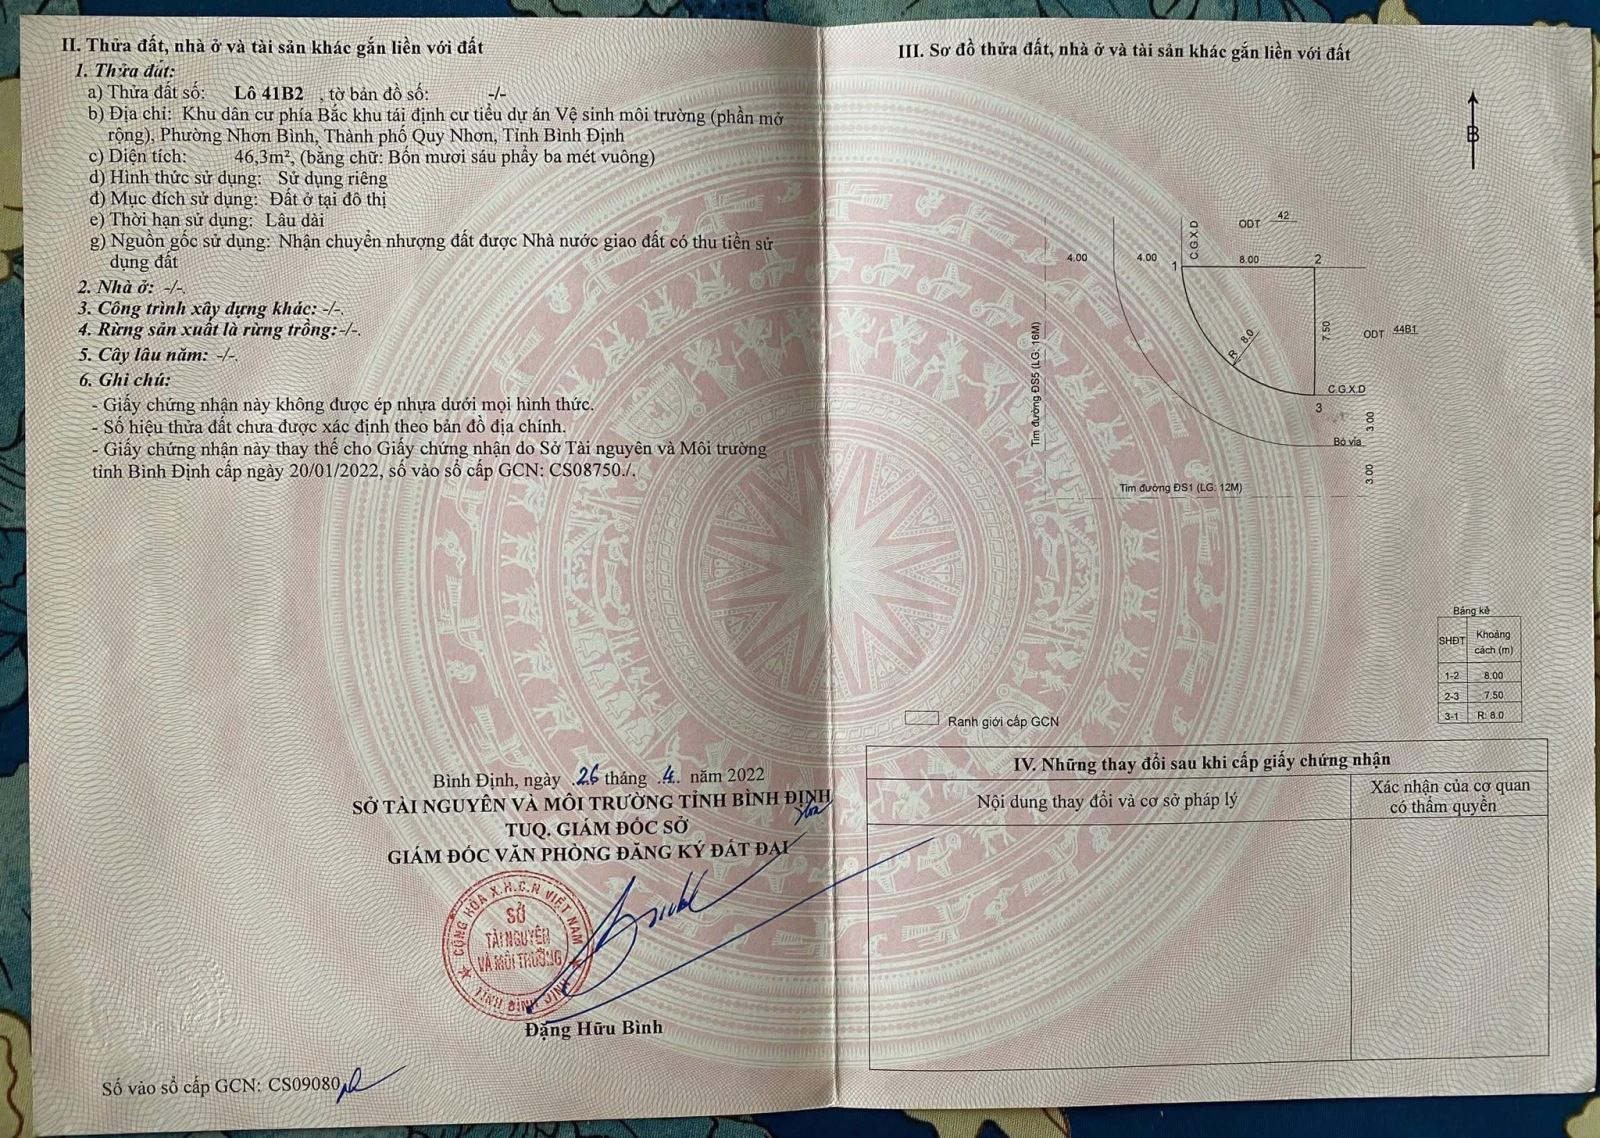 II. Thửa đất, nhà ở và tài sản khác gắn liền với đất
1. Thửa đất:
a) Thửa đất số: Lô 41B2 , tờ bản đồ số: -/-
b) Địa chỉ: Khu dân cư phía Bắc khu tái định cư tiểu dự án Vệ sinh môi trường (phần mở
rộng), Phường Nhơn Bình, Thành phố Quy Nhơn, Tỉnh Bình Định
c) Diện tích: 46,3m², (bằng chữ: Bốn mươi sáu phẩy ba mét vuông)
d) Hình thức sử dụng: Sử dụng riêng
đ) Mục đích sử dụng: Đất ở tại đô thị
e) Thời hạn sử dụng: Lâu dài
g) Nguồn gốc sử dụng: Nhận chuyển nhượng đất được Nhà nước giao đất có thu tiền sử
dụng đất
2. Nhà ở: -/-.
3. Công trình xây dựng khác: -/-.
4. Rừng sản xuất là rừng trồng:-/-.
5. Cây lâu năm: -/-.
6. Ghi chú:
- Giấy chứng nhận này không được ép nhựa dưới mọi hình thức.
- Số hiệu thửa đất chưa được xác định theo bản đồ địa chính.
- Giấy chứng nhận này thay thế cho Giấy chứng nhận do Sở Tài nguyên và Môi trường
tỉnh Bình Định cấp ngày 20/01/2022, số vào sổ cấp GCN: CS08750./.
Bình Định, ngày 26 tháng 4 năm 2022
SỞ TÀI NGUYÊN VÀ MÔI TRƯỜNG TỈNH BÌNH ĐỊNH
TUQ. GIÁM ĐỐC SỞ
GIÁM ĐỐC VĂN PHÒNG ĐĂNG KÝ ĐẤT ĐAI
CỘNG HÒA X.H.C.N VIỆT NAM
SỞ
TÀI NGUYÊN
VÀ MÔI TRƯỜNG
TỈNH BÌNH ĐỊNH
Đặng Hữu Bình
Số vào sổ cấp GCN: CS09080
III. Sơ đồ thửa đất, nhà ở và tài sản khác gắn liền với đất
B
ODT 42
C.G.X.D
4.00
4.00
1
8.00
2
7.50
ODT 44B1
R: 8.0
C.G.X.D
3
3.00
Bó vỉa
3.00
Tim đường ĐS5 (LG: 16M)
Tim đường ĐS1 (LG: 12M)
Bảng kê
SHĐT Khoảng cách (m)
1-2 8.00
2-3 7.50
3-1 R: 8.0
Ranh giới cấp GCN
IV. Những thay đổi sau khi cấp giấy chứng nhận
Nội dung thay đổi và cơ sở pháp lý
Xác nhận của cơ quan
có thẩm quyền